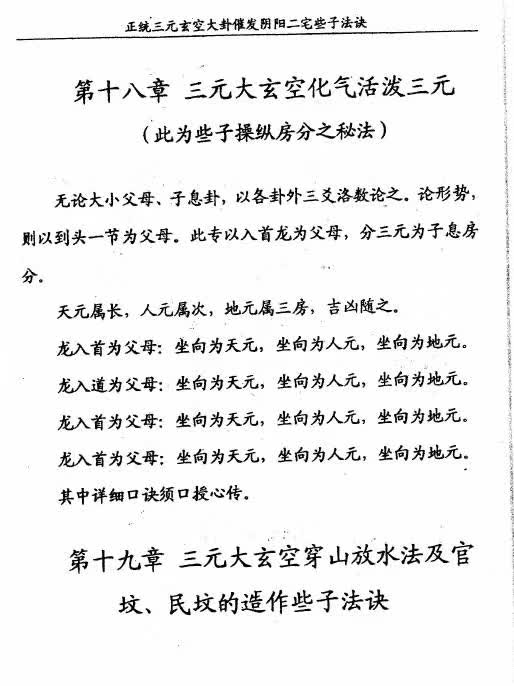 正统三元玄空大卦催发阴阳二宅些子法诀
第十八章 三元大玄空化气活泼三元
（此为些子操纵房分之秘法）
无论大小父母、子息卦，以各卦外三爻洛数论之。论形势，
则以到头一节为父母。此专以入首龙为父母，分三元为子息房
分。
天元属长，人元属次，地元属三房，吉凶随之。
龙入首为父母：坐向为天元，坐向为人元，坐向为地元。
龙入道为父母：坐向为天元，坐向为人元，坐向为地元。
龙入首为父母：坐向为天元，坐向为人元，坐向为地元。
龙入首为父母：坐向为天元，坐向为人元，坐向为地元。
其中详细口诀须口授心传。
第十九章 三元大玄空穿山放水法及官
坟、民坟的造作些子法诀